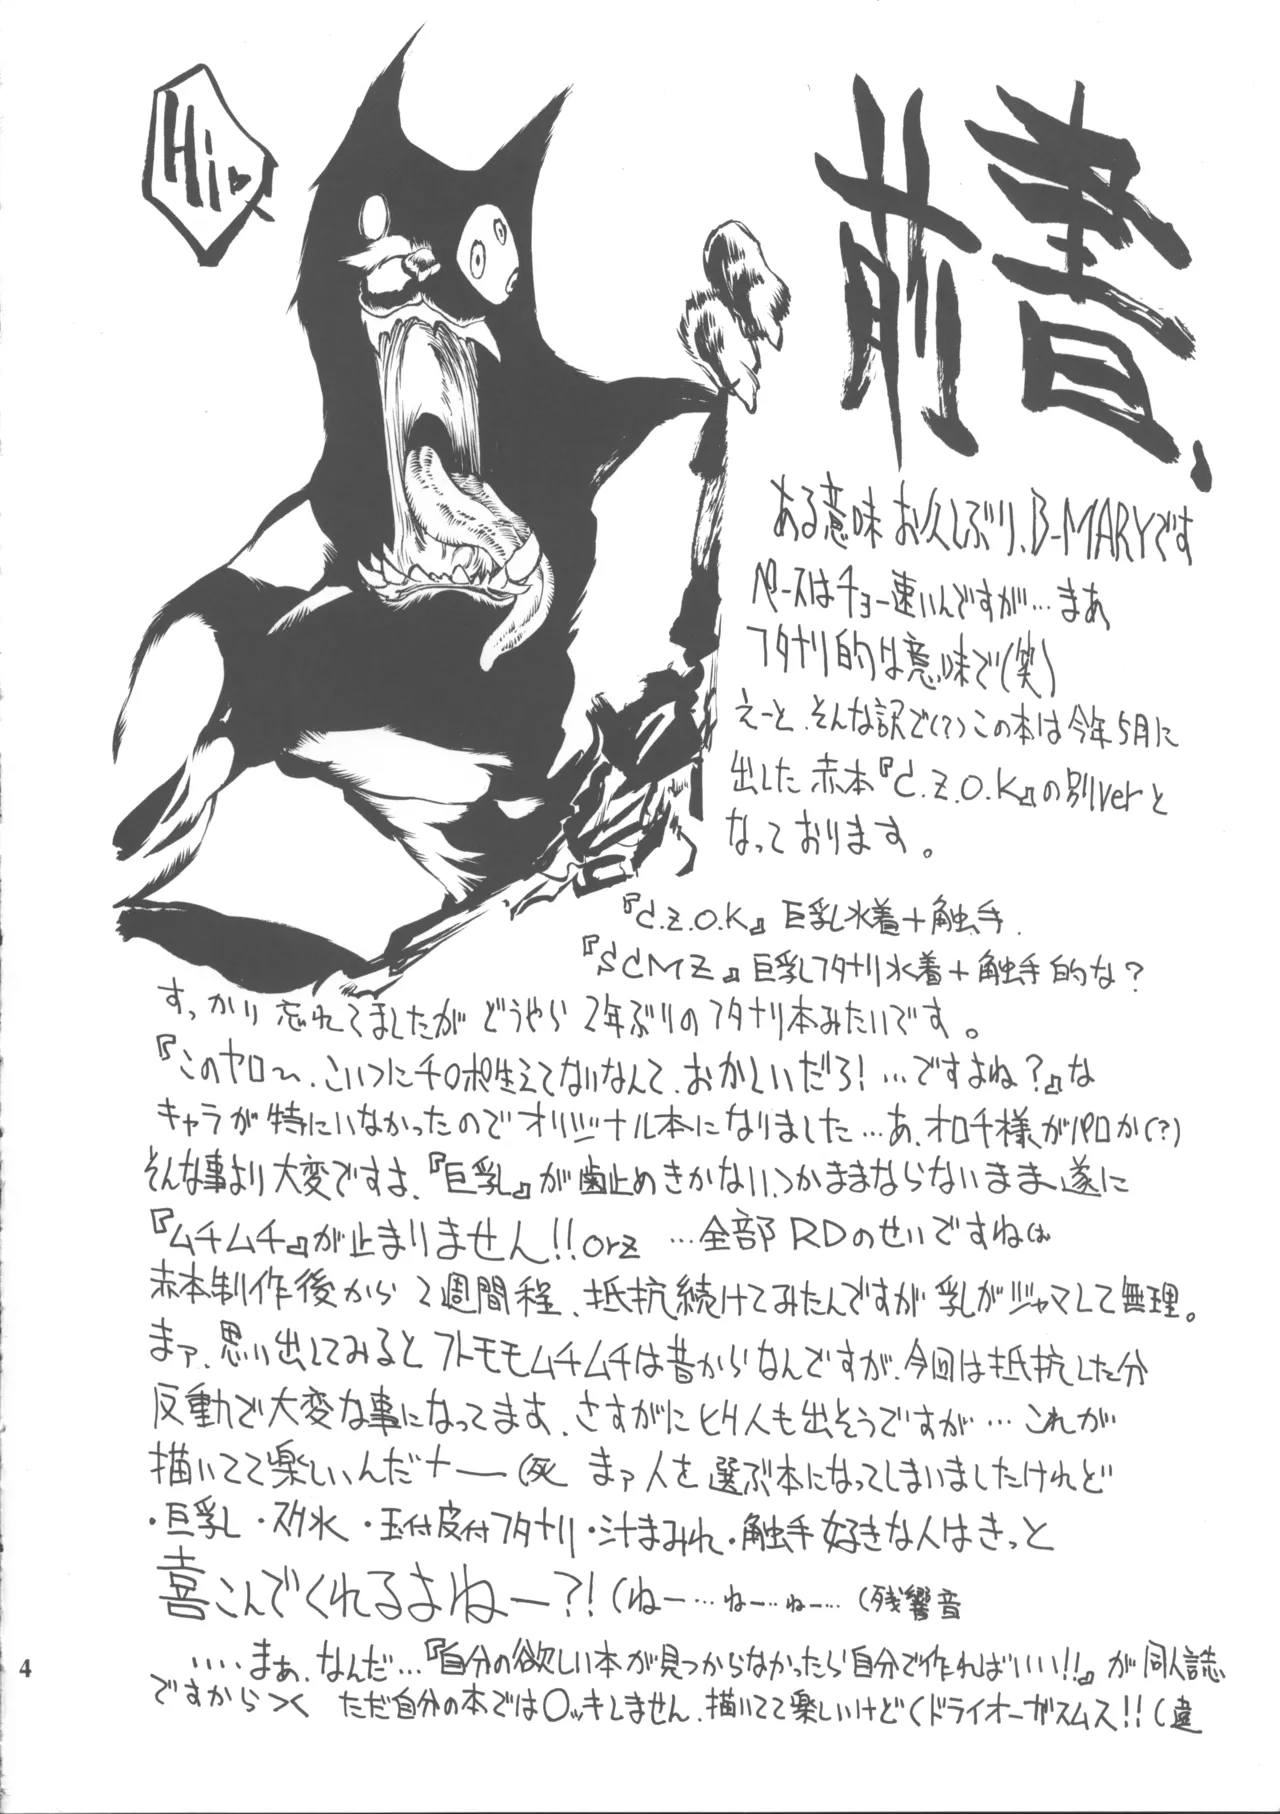 Hi♥
前書、
ある意味お久しぶり、B-MARYです
ペースはチョー速いんですが…まあ
フタナリ的な意味で(笑)
えーと、そんな訳で(?)この本は今年5月に
出した赤本『C.Z.O.K』の別verと
なっております。
『C.Z.O.K』巨乳水着+触手.
『SCMZ』巨乳フタナリ水着+触手的な?
すっかり忘れてましたがどうやら2年ぶりのフタナリ本みたいです。
『このヤロ〜、こいつにチ○ポ生えてないなんて、おかしいだろ!…ですよね?』な
キャラが特にいなかったのでオリジナル本になりました…あ、オロチ様がパロか(?)
そんな事より大変ですよ、『巨乳』が歯止めきかない、つかままならないまま遂に
『ムチムチ』が止まりません!!orz …全部RDのせいですねは
赤本制作後から2週間程、抵抗続けてみたんですが乳がジャマして無理。
まァ、思い出してみるとフトモモムチムチは昔からなんですが、今回は抵抗した分
反動で大変な事になってます、さすがにヒク人も出そうですが…これが
描いてて楽しいんだナー(死 まァ人を選ぶ本になってしまいましたけれど
・巨乳・スク水・玉付皮付フタナリ・汁まみれ・触手好きな人はきっと
喜こんでくれるよねー?!(ねー…ねー…ねー…(残響音
‥‥まぁ、なんだ…『自分の欲しい本が見つからなかったら自分で作ればいい!!』が同人誌
ですからつく ただ自分の本では○ッキしません、描いてて楽しいけど(ドライオーガスムス!!(違
4